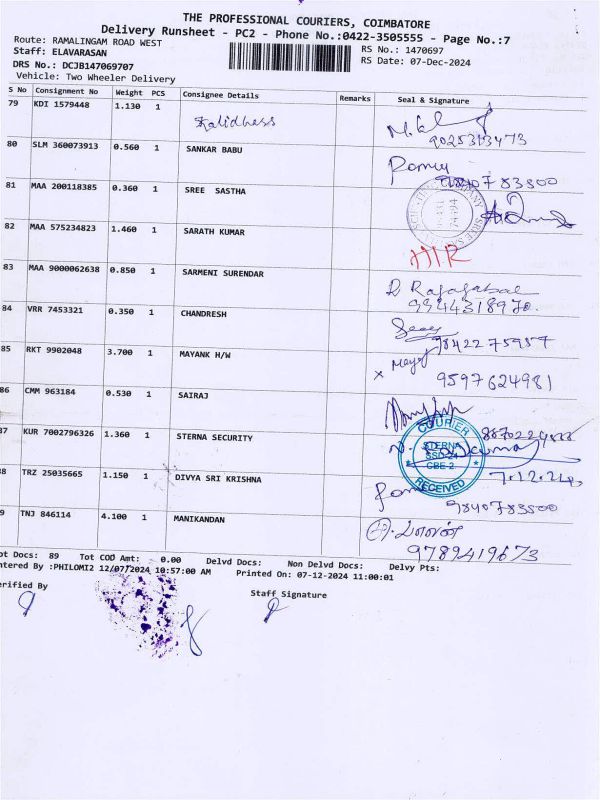 THE PROFESSIONAL COURIERS, COIMBATORE
Delivery Runsheet - PC2 - Phone No.:0422-3505555 - Page No.:7
Route: RAMALINGAM ROAD WEST
RS No.: 1470697
Staff: ELAVARASAN
RS Date: 07-Dec-2024
DRS No.: DCJB147069707
Vehicle: Two Wheeler Delivery
S No Consignment No Weight PCS Consignee Details Remarks Seal & Signature
79 KDI 1579448 1.130 1 Kalidhass
9025313473
80 SLM 360073913 0.560 1 SANKAR BABU
9840783500
81 MAA 200118385 0.360 1 SREE SASTHA
82 MAA 575234823 1.460 1 SARATH KUMAR HIR
83 MAA 9000062638 0.850 1 SARMENI SURENDAR
9944318970.
84 VRR 7453321 0.350 1 CHANDRESH
9842275957
85 RKT 9902048 3.700 1 MAYANK H/W
x 9597624981
86 CMM 963184 0.530 1 SAIRAJ
37 KUR 7002796326 1.360 1 STERNA SECURITY
COURIER
STERNA
SSD-24
CBE-2
RECEIVED
7.12.24
38 TRZ 25035665 1.150 1 DIVYA SRI KRISHNA
9840783500
9 TNJ 846114 4.100 1 MANIKANDAN
9789419673
ot Docs: 89 Tot COD Amt: 0.00 Delvd Docs: Non Delvd Docs: Delvy Pts:
ntered By :PHILOMI2 12/07/2024 10:57:00 AM Printed On: 07-12-2024 11:00:01
erified By Staff Signature